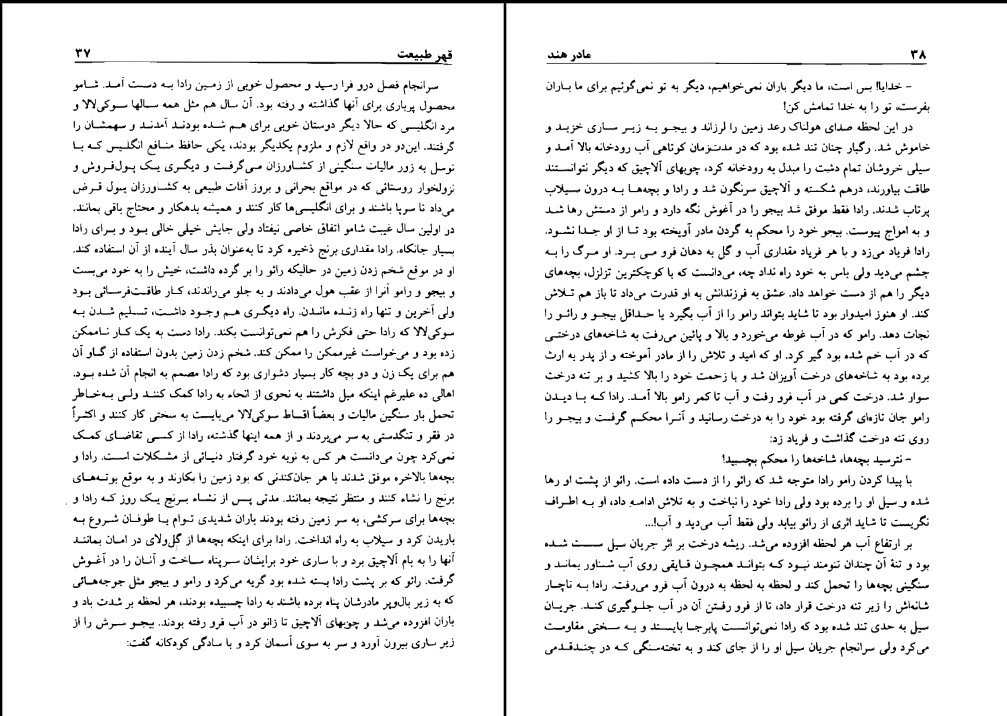 قهر طبیعت ۳۷
سرانجام فصل درو فرا رسید و محصول خوبی از زمین رادا به دست آمد. شامو
محصول پرباری برای آنها گذاشته و رفته بود. آن سال هم مثل همه سالها سوکی‌لالا و
مرد انگلیسی که حالا دیگر دوستان خوبی برای هم شده بودند آمدند و سهمشان را
گرفتند. این‌دو در واقع لازم و ملزوم یکدیگر بودند، یکی حافظ منافع انگلیس که با
توسل به زور مالیات سنگینی از کشاورزان می‌گرفت و دیگری یک پول‌فروش و
نزولخوار روستائی که در مواقع بحرانی و بروز آفات طبیعی به کشاورزان پول قرض
می‌داد تا سرپا باشند و برای انگلیسی‌ها کار کنند و همیشه بدهکار و محتاج باقی بمانند.
در اولین سال غیبت شامو اتفاق خاصی نیفتاد ولی جایش خیلی خالی بود و برای رادا
بسیار جانکاه. رادا مقداری برنج ذخیره کرد تا به‌عنوان بذر سال آینده از آن استفاده کند.
او در موقع شخم زدن زمین در حالیکه رائو را بر گرده داشت، خیش را به خود می‌بست
و بیجو و رامو آنرا از عقب هول می‌دادند و به جلو می‌راندند، کار طاقت‌فرسائی بود
ولی آخرین و تنها راه زنده ماندن. راه دیگری هم وجود داشت، تسلیم شدن به
سوکی‌لالا که رادا حتی فکرش را هم نمی‌توانست بکند. رادا دست به یک کار ناممکن
زده بود و می‌خواست غیرممکن را ممکن کند. شخم زدن زمین بدون استفاده از گاو آن
هم برای یک زن و دو بچه کار بسیار دشواری بود که رادا مصمم به انجام آن شده بود.
اهالی ده علیرغم اینکه میل داشتند به نحوی از انحاء به رادا کمک کنند ولی به‌خاطر
تحمل بار سنگین مالیات و بعضاً اقساط سوکی‌لالا می‌بایست به سختی کار کنند و اکثراً
در فقر و تنگدستی به سر می‌بردند و از همه اینها گذشته، رادا از کسی تقاضای کمک
نمی‌کرد چون می‌دانست هر کس به نوبه خود گرفتار دنیائی از مشکلات است. رادا و
بچه‌ها بالاخره موفق شدند با هر جان‌کندنی که بود زمین را بکارند و به موقع بوته‌های
برنج را نشاء کنند و منتظر نتیجه بمانند. مدتی پس از نشاء برنج یک روز که رادا و
بچه‌ها برای سرکشی، به سر زمین رفته بودند باران شدیدی توام با طوفان شروع به
باریدن کرد و سیلاب به راه انداخت. رادا برای اینکه بچه‌ها از گل‌ولای در امان بمانند
آنها را به بام آلاچیق برد و با ساری خود برایشان سرپناه ساخت و آنان را در آغوش
گرفت. رائو که بر پشت رادا بسته شده بود گریه می‌کرد و رامو و بیجو مثل جوجه‌هائی
که به زیر بال‌وپر مادرشان پناه برده باشند به رادا چسبیده بودند، هر لحظه بر شدت باد و
باران افزوده می‌شد و چوبهای آلاچیق تا زانو در آب فرو رفته بودند. بیجو سرش را از
زیر ساری بیرون آورد و سر به سوی آسمان کرد و با سادگی کودکانه گفت:
۳۸ مادر هند
– خدایا! بس است، ما دیگر باران نمی‌خواهیم، دیگر به تو نمی‌گوئیم برای ما باران
بفرست، تو را به خدا تمامش کن!
در این لحظه صدای هولناک رعد زمین را لرزاند و بیجو به زیر ساری خزید و
خاموش شد. رگبار چنان تند شده بود که در مدت‌زمان کوتاهی آب رودخانه بالا آمد و
سیلی خروشان تمام دشت را مبدل به رودخانه کرد، چوبهای آلاچیق که دیگر نتوانستند
طاقت بیاورند، درهم شکسته و آلاچیق سرنگون شد و رادا و بچه‌ها به درون سیلاب
پرتاب شدند. رادا فقط موفق شد بیجو را در آغوش نگه دارد و رامو از دستش رها شد
و به امواج پیوست. بیجو خود را محکم به گردن مادر آویخته بود تا از او جدا نشود.
رادا فریاد می‌زد و با هر فریاد مقداری آب و گل به دهان فرو می برد. او مرگ را به
چشم می‌دید ولی یاس به خود راه نداد چه، می‌دانست که با کوچکترین تزلزل، بچه‌های
دیگر را هم از دست خواهد داد. عشق به فرزندانش به او قدرت می‌داد تا باز هم تلاش
کند. او هنوز امیدوار بود تا شاید بتواند رامو را از آب بگیرد یا حداقل بیجو و رائو را
نجات دهد. رامو که در آب غوطه می‌خورد و بالا و پائین می‌رفت به شاخه‌های درختی
که در آب خم شده بود گیر کرد. او که امید و تلاش را از مادر آموخته و از پدر به ارث
برده بود به شاخه‌های درخت آویزان شد و با زحمت خود را بالا کشید و بر تنه درخت
سوار شد. درخت کمی در آب فرو رفت و آب تا کمر رامو بالا آمد. رادا که با دیدن
رامو جان تازه‌ای گرفته بود خود را به درخت رسانید و آنرا محکم گرفت و بیجو را
روی تنه درخت گذاشت و فریاد زد:
– نترسید بچه‌ها، شاخه‌ها را محکم بچسبید!
با پیدا کردن رامو رادا متوجه شد که رائو را از دست داده است. رائو از پشت او رها
شده و سیل او را برده بود ولی رادا خود را نباخت و به تلاش ادامه داد، او به اطراف
نگریست تا شاید اثری از رائو بیابد ولی فقط آب می‌دید و آب!...
بر ارتفاع آب هر لحظه افزوده می‌شد. ریشه درخت بر اثر جریان سیل سست شده
بود و تنهٔ آن چندان تنومند نبود که بتواند همچون قایقی روی آب شناور بماند و
سنگینی بچه‌ها را تحمل کند و لحظه به لحظه به درون آب فرو می‌رفت. رادا به ناچار
شانه‌اش را زیر تنه درخت قرار داد، تا از فرو رفتن آن در آب جلوگیری کند. جریان
سیل به حدی تند شده بود که رادا نمی‌توانست پابرجا بایستد و به سختی مقاومت
می‌کرد ولی سرانجام جریان سیل او را از جای کند و به تخته‌سنگی که در چندقدمی